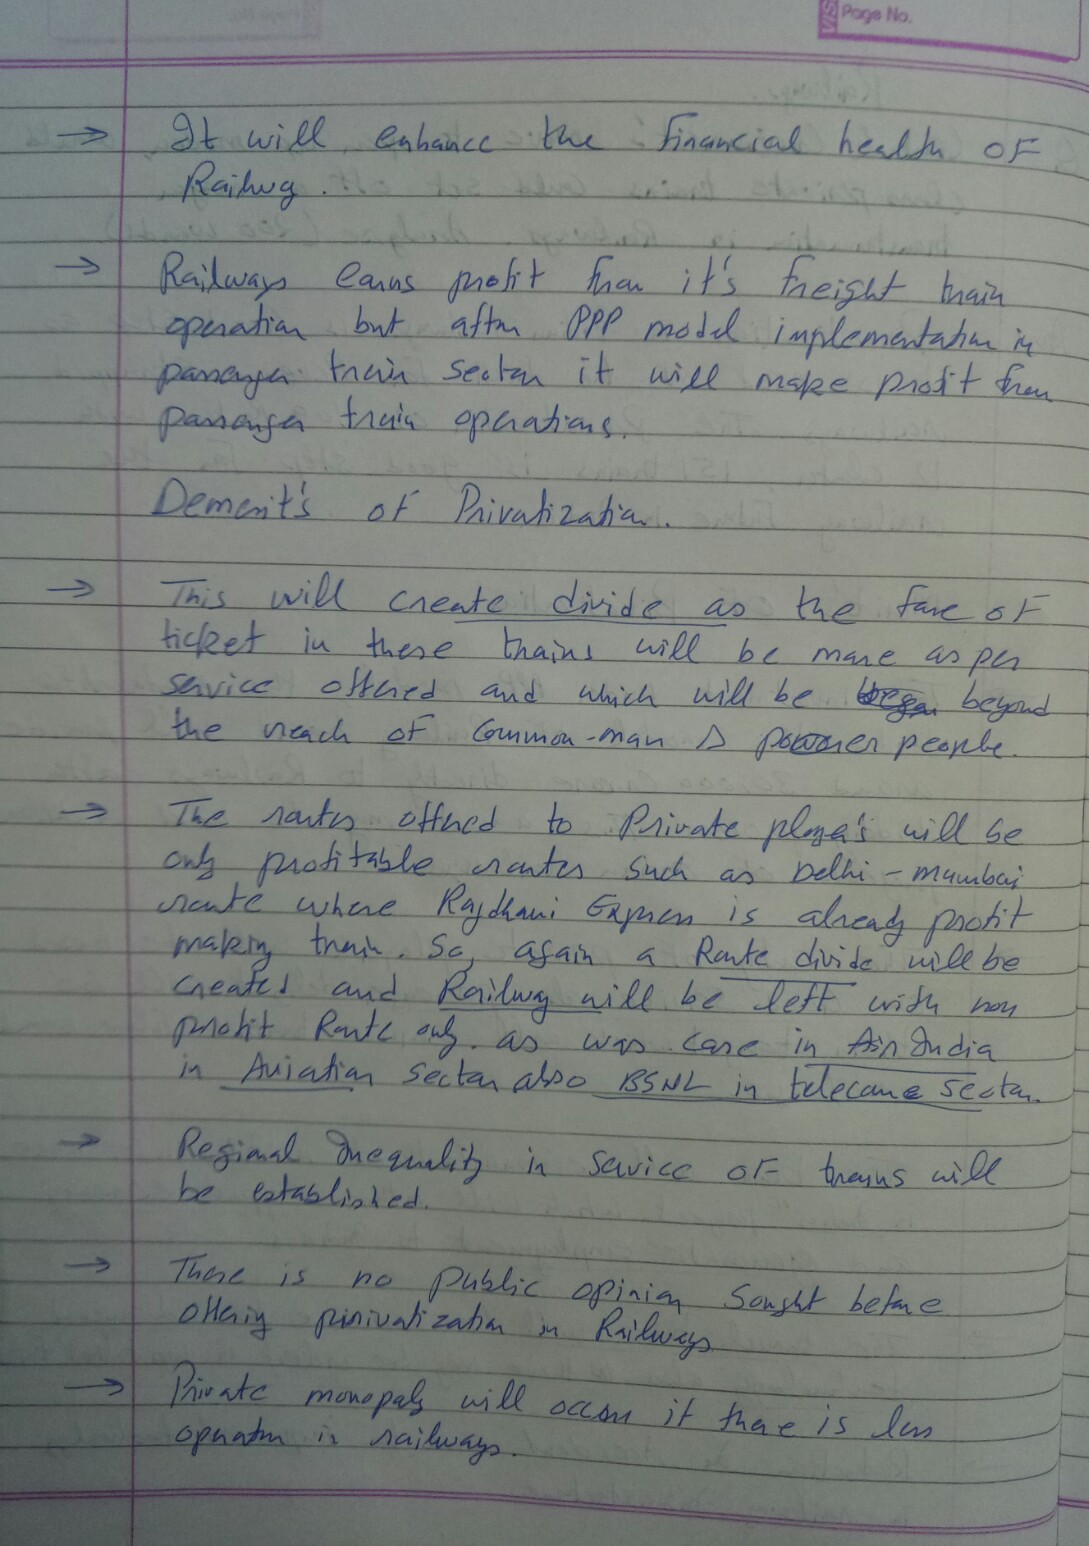 Page No.
→ It will enhance the financial health of
Railway.
→ Railways earns profit from it's freight train
operation but after PPP model implementation in
passenger train sector it will make profit from
passenger train operations.
Demerit's of Privatization.
→ This will create divide as the fare of
ticket in these trains will be more as per
service offered and which will be beyond
the reach of Common-man & poorer people.
→ The routes offered to Private player's will be
only profitable routes such as Delhi - Mumbai
route where Rajdhani Express is already profit
making train. So, again a Route divide will be
created and Railway will be left with non
profit Route only. as was case in Air India
in Aviation Sector also BSNL in telecome Sector.
→ Regional Inequality in service of trains will
be established.
→ There is no public opinion sought before
offering privatization in Railways
→ Private monopoly will occur if there is less
operator in railways.